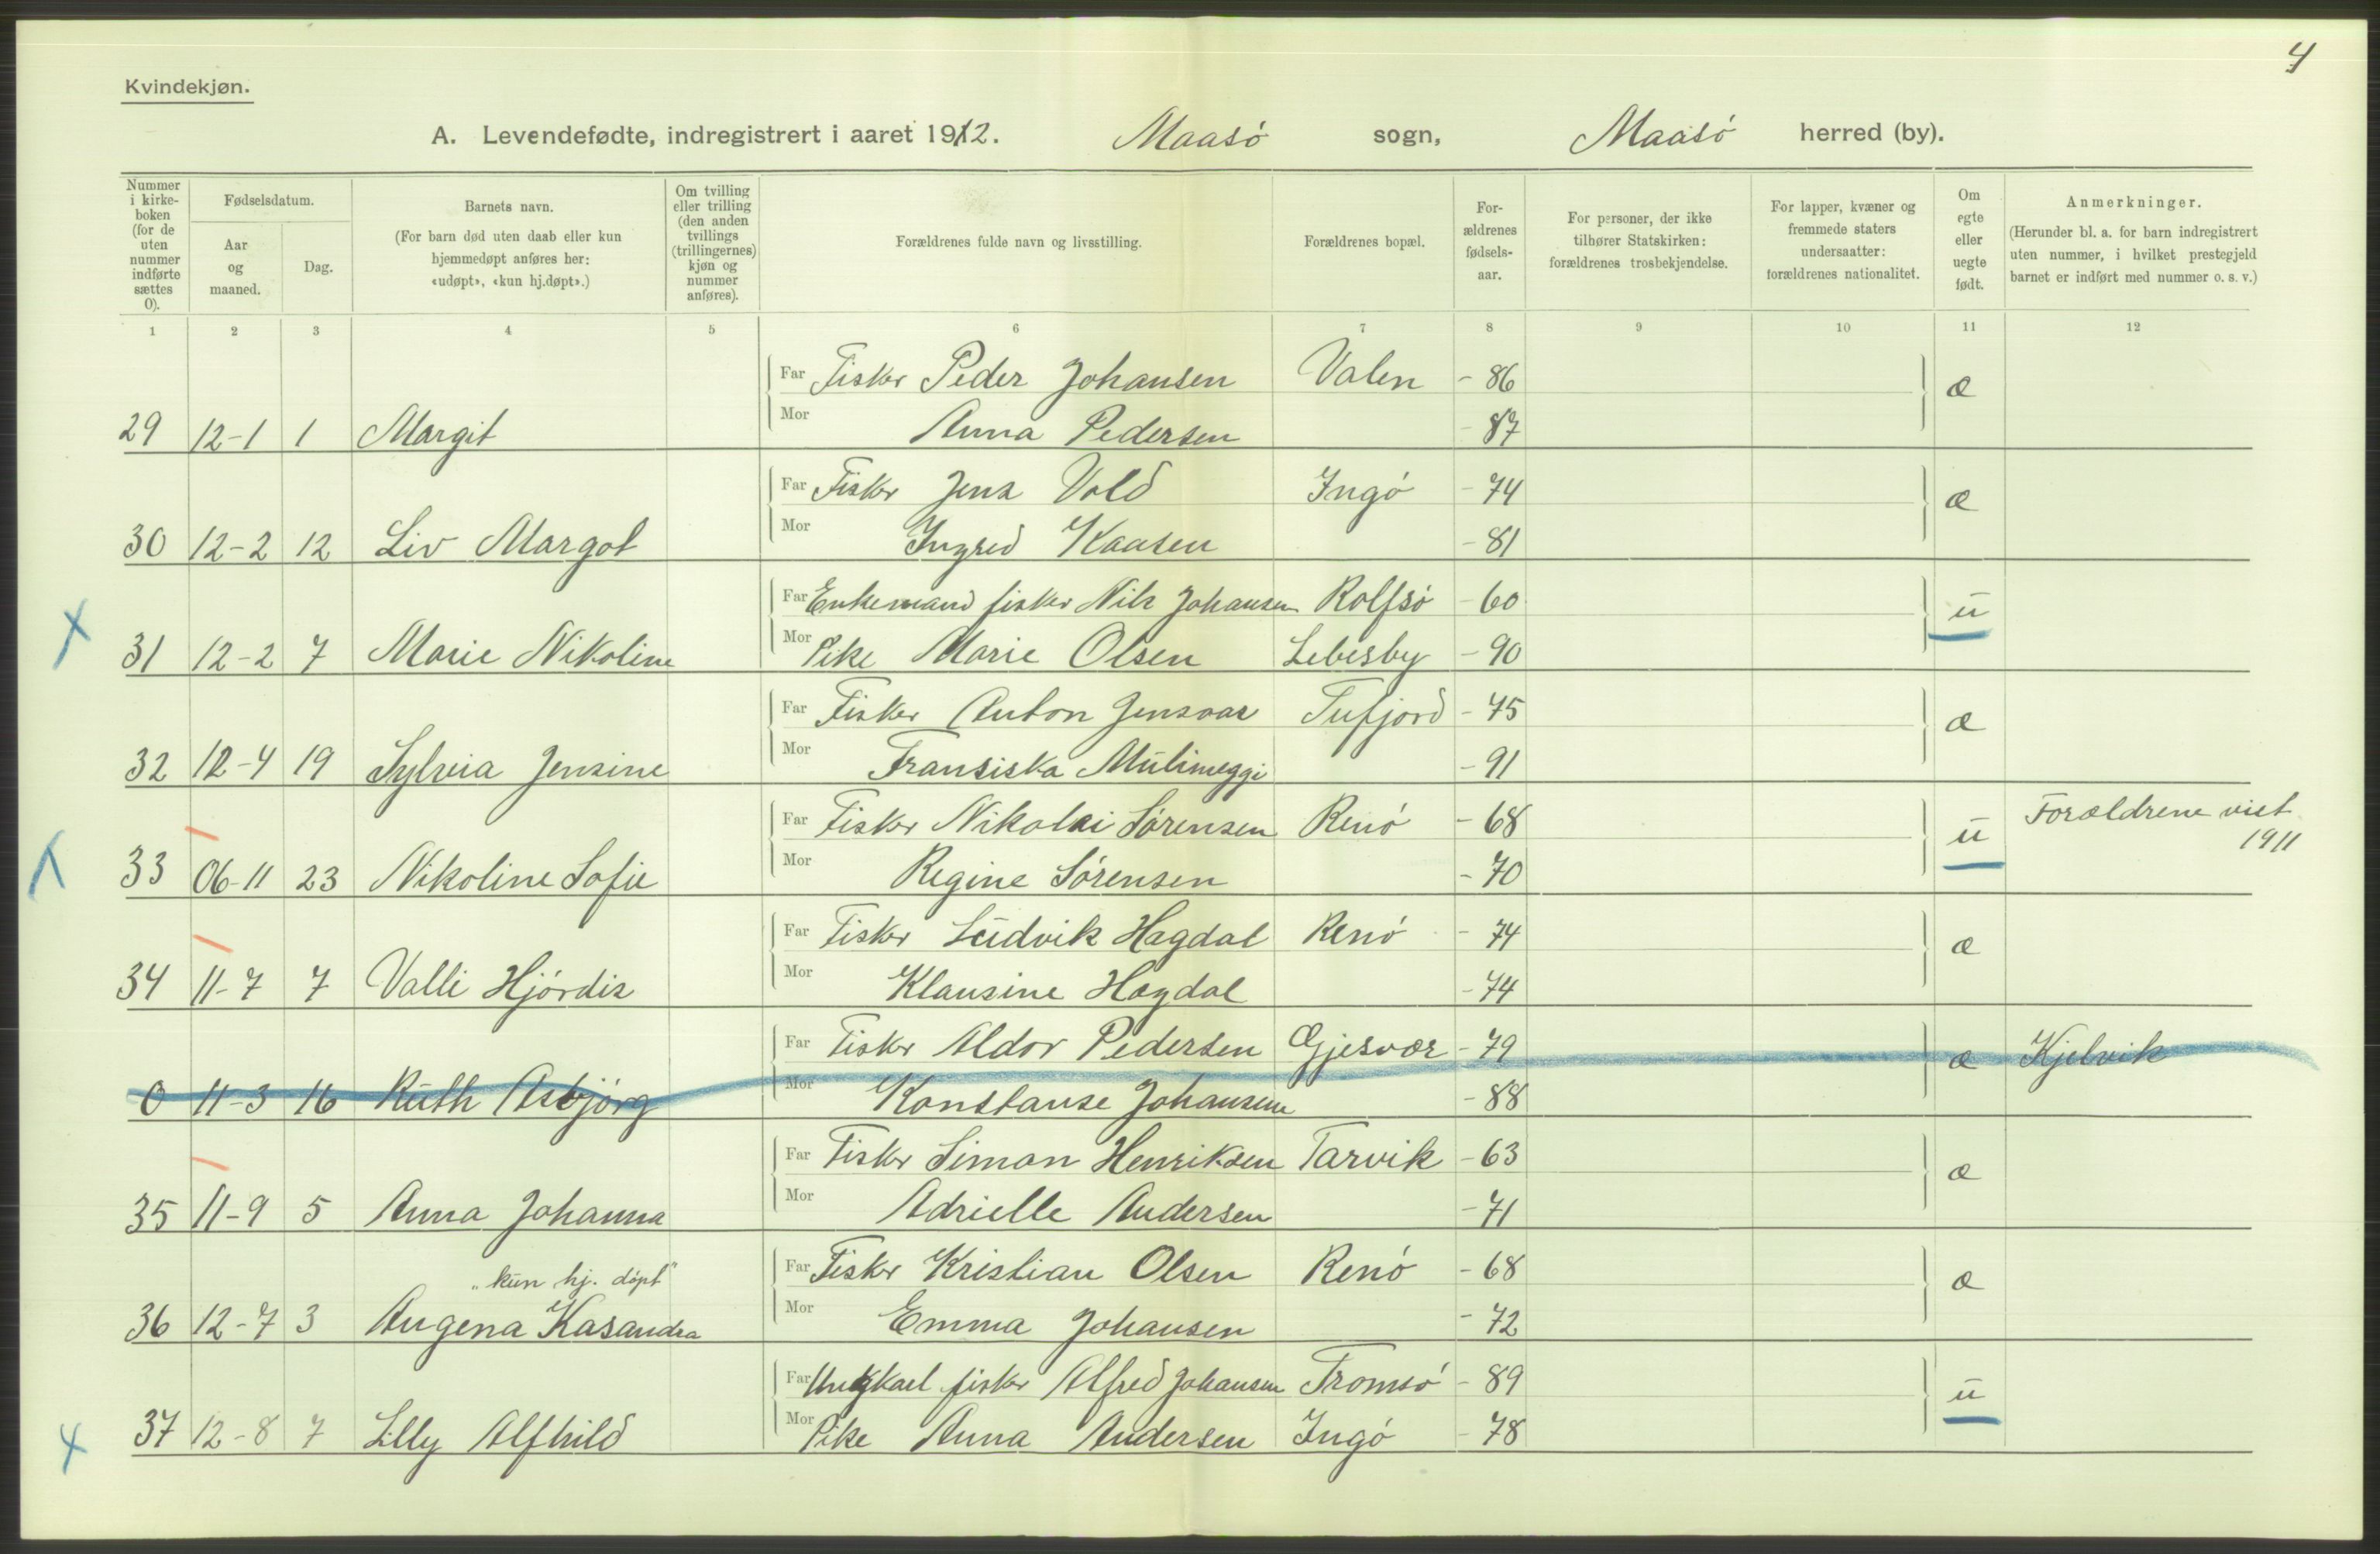 4
Kvindekjøn.
A. Levendefødte, indregistrert i aaret 1912. Maasö sogn, Maasö herred (by).
Nummer i kirke-boken (for de uten nummer indførte sættes 0).
Fødselsdatum.
Aar og maaned.
Dag.
Barnets navn.
(For barn død uten daab eller kun hjemmedøpt anføres her: «udøpt», «kun hj.døpt».)
Om tvilling eller trilling (den anden tvillings (trillingernes) kjøn og nummer anføres).
Forældrenes fulde navn og livsstilling.
Forældrenes bopæl.
For-ældrenes fødsels-aar.
For personer, der ikke tilhører Statskirken: forældrenes trosbekjendelse.
For lapper, kvæner og fremmede staters undersaatter: forældrenes nationalitet.
Om egte eller uegte født.
Anmerkninger.
(Herunder bl. a. for barn indregistrert uten nummer, i hvilket prestegjeld barnet er indført med nummer o. s. v.)
1 2 3 4 5 6 7 8 9 10 11 12
Far Fisker Peder Johansen Valen - 86 æ
29 12-1 1 Margit Mor Anna Pedersen - 87
Far Fisker Jens Vold Ingö - 74 æ
30 12-2 12 Liv Margot Mor Ingred Kaasen - 81
Far Enkemand fisker Nils Johansen Rolfsö - 60 ü
31 12-2 7 Marie Nikoline Mor Pike Marie Olsen Lebesby - 90
Far Fisker Anton Jensvar Tufjord - 75 æ
32 12-4 19 Sylvia Jensine Mor Fransiska Mülimeggi - 91
Far Fisker Nikolai Sörensen Renö - 68 ü Forældrene viet 1911
33 06-11 23 Nikoline Sofie Mor Regine Sörensen - 70
Far Fisker Lüdvik Hagdal Renö - 74 æ
34 11-7 7 Valli Hjördis Mor Klausine Hagdal - 74
Far Fisker Aldor Pedersen Gjesvær - 79 æ Kjelvik
0 11-3 16 Rüth Asbjörg Mor Konstanse Johansen - 88
Far Fisker Simon Henriksen Tarvik - 63 æ
35 11-9 5 Anna Johanna Mor Adrielle Andersen - 71
„kün hj. döpt" Far Fisker Kristian Olsen Renö - 68 æ
36 12-7 3 Augena Kasandra Mor Emma Johansen - 72
Far Ungkael fisker Alfred Johansen Tromsö - 89 ü
37 12-8 7 Lilly Alfhild Mor Pike Anna Andersen Ingö - 78